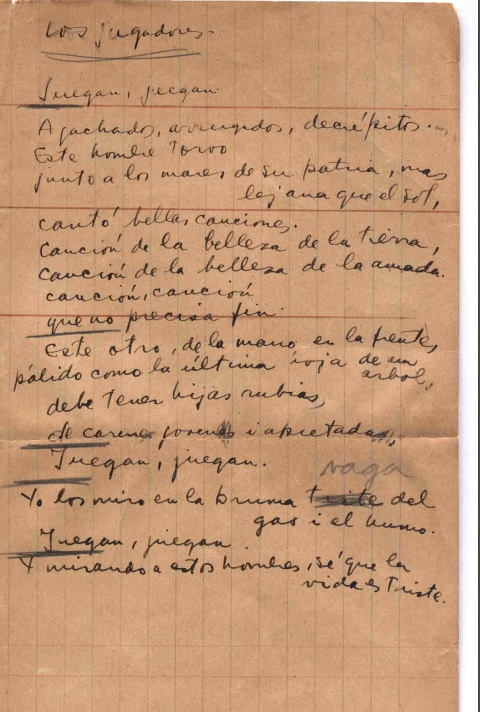 Los jugadores.
Juegan, juegan.
Agachados, arrugados, decrépitos.
Este hombre torvo
junto a los mares de su patria, mas
lejana que el sol,
cantó bellas canciones.
Canción de la belleza de la tierra,
canción de la belleza de la amada.
canción, canción
que no precisa fin.
Este otro, de la mano en la frente,
pálido como la última hoja de un
arbol,
debe tener hijas rubias,
de carnes jovenes i apretadas,
Juegan, juegan.
vaga
Yo los miro en la bruma triste del
gas i el humo.
Juegan, juegan
Y mirando a estos hombres, sé que la
vida es triste.